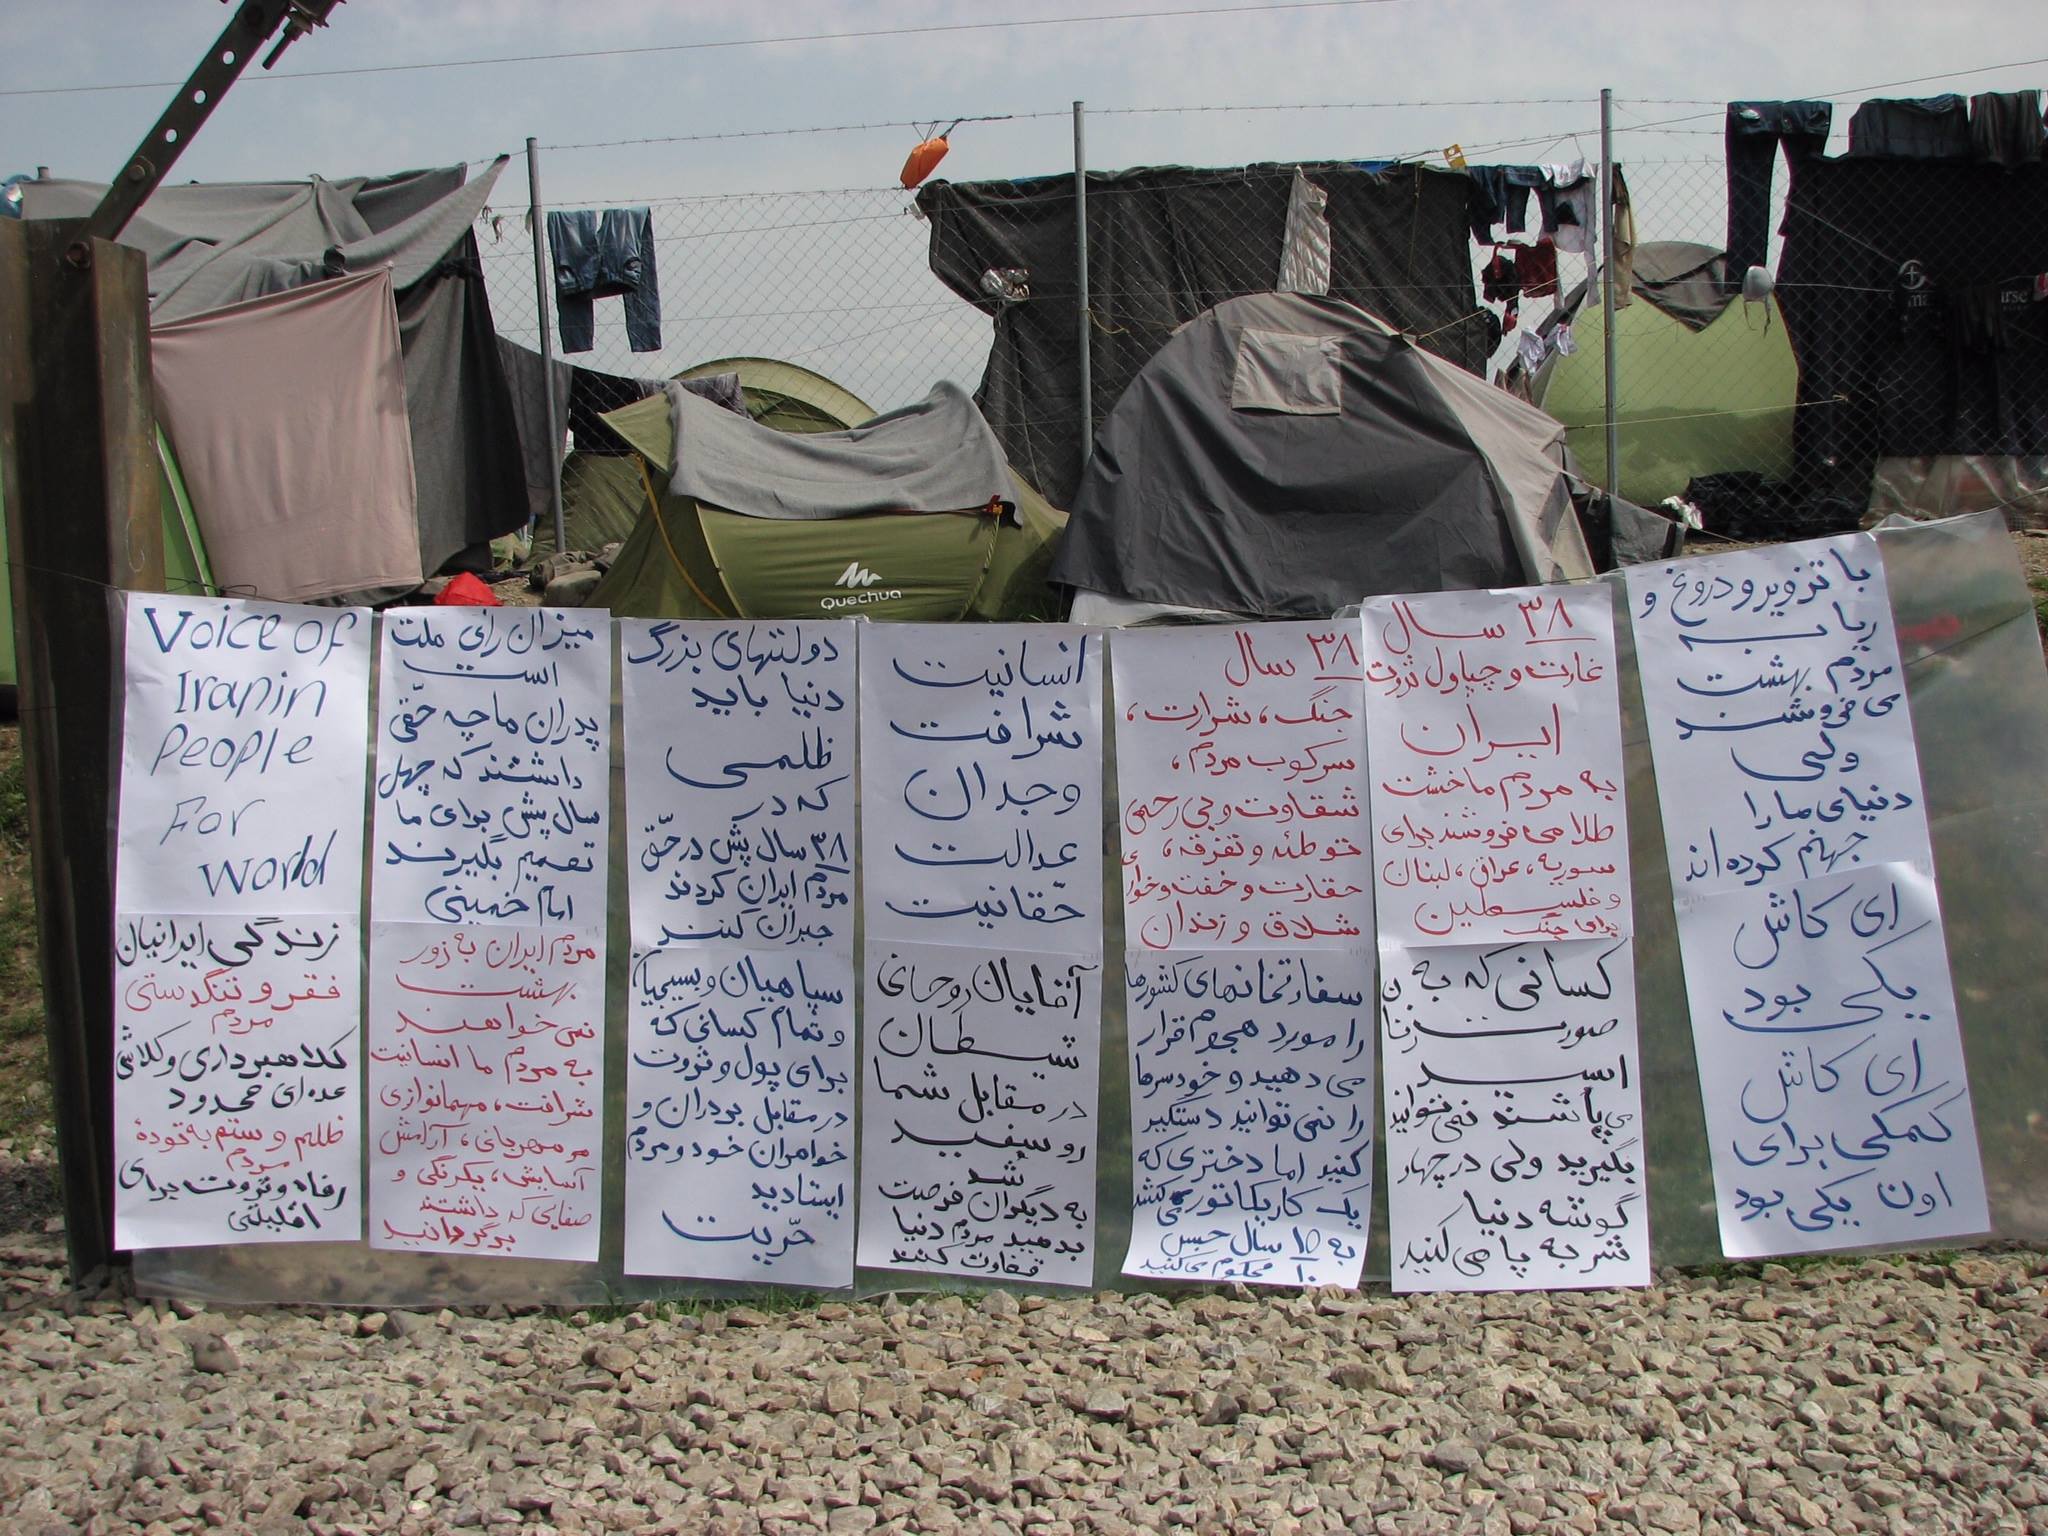 Quechua
Voice of
Iranin
People
For
World
زندگی ایرانیان
فقر و تنگدستی
مردم
کلاهبرداری و کلاشی
عده‌ای محدود
ظلم و ستم به تودهٔ
مردم
رفاه و ثروت برای
اقلیتی
میزان رأی ملت
است
پدران ما چه حقّی
داشتند که چهل
سال پیش برای ما
تصمیم بگیرند
امام خمینی
مردم ایران به زور
بهشت
نمی خواهند
به مردم ما انسانیت
شرافت، مهمانوازی
مهربانی، آرامش
آسایش، یکرنگی و
صفایی که داشتند
برگردانید
دولتهای بزرگ
دنیا باید
ظلمی
که در
۳۸ سال پیش در حقّ
مردم ایران کردند
جبران کنند
سپاهیان و بسیجیان
و تمام کسانی که
برای پول و ثروت
در مقابل برادران و
خواهران خود و مردم
ایستادید
حرّیت
انسانیت
شرافت
وجدان
عدالت
حقّانیت
آقایان روحانی
شیطان
در مقابل شما
روسفید
شد
به دیگران فرصت
بدهید مردم دنیا
قضاوت کنند
۳۸ سال
جنگ، شرارت،
سرکوب مردم،
شقاوت و بی رحمی
توطئه و تفرقه،
حقارت و خفت و خواری
شلاق و زندان
سفارتخانهای کشورها
را مورد هجوم قرار
می دهید و خودسرها
را نمی توانید دستگیر
کنید اما دختری که
یک کاریکاتور می کشد
به ۱۵ سال حبس
محکوم می کنید
۳۸ سال
غارت و چپاول ثروت
ایران
به مردم ما خشت
طلا می فروشند برای
سوریه، عراق، لبنان
و فلسطین
برای جنگ
کسانی که به
صورت زنها
اسید
می پاشند نمی توانید
بگیرید ولی در چهار
گوشه دنیا
شر به پا می کنید
با تزویر و دروغ و
ریا به
مردم بهشت
می فروشند
ولی
دنیای ما را
جهنم کرده اند
ای کاش
یکی بود
ای کاش
کمکی برای
اون یکی بود